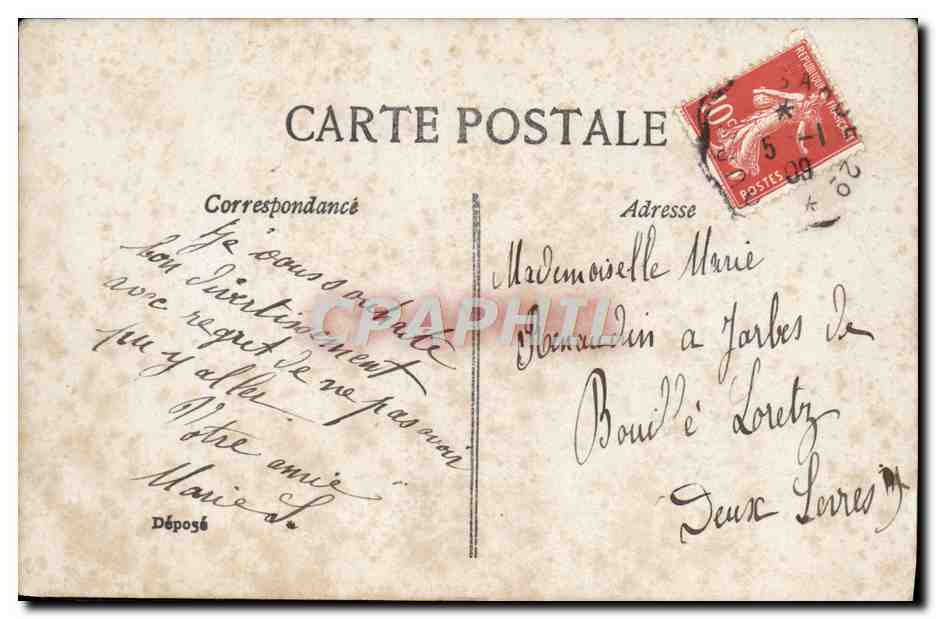 CARTE POSTALE
RÉPUBLIQUE FRANÇAISE
10c
POSTES
5 -1
09
Correspondance
Je vous souhaite
bon divertissement
avec regret de ne pas avoir
pu y aller
Votre amie
Marie S.
Déposé
Adresse
Mademoiselle Marie
Renaudin a Jarbes de
Bouillé Loretz
Deux Sevres
CPAPHIL